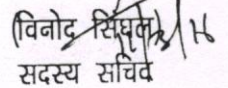 (विनोद सिंघल)
सदस्य सचिव